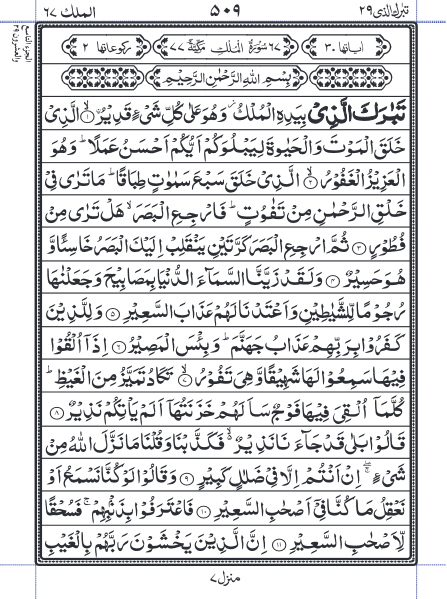 تبٰرك الذی ٢٩ ٥٠٩ الملك ٦٧
الجزء التاسع والعشرون ٢٩
اٰیاتها ٣٠ ٦٧ سُوْرَةُ الْمُلْكِ مَكِّیَّةٌ ٧٧ رکوعاتها ٢
بِسْمِ اللّٰهِ الرَّحْمٰنِ الرَّحِیْمِ
تَبٰرَكَ الَّذِیْ بِیَدِهِ الْمُلْكُ ز وَهُوَ عَلٰی كُلِّ شَیْءٍ قَدِیْرُ ۙ﴿١﴾ اۨلَّذِیْ
خَلَقَ الْمَوْتَ وَالْحَیٰوةَ لِیَبْلُوَكُمْ اَیُّكُمْ اَحْسَنُ عَمَلًا ؕ وَهُوَ
الْعَزِیْزُ الْغَفُوْرُ ۙ﴿٢﴾ الَّذِیْ خَلَقَ سَبْعَ سَمٰوٰتٍ طِبَاقًا ؕ مَا تَرٰی فِیْ
خَلْقِ الرَّحْمٰنِ مِنْ تَفٰوُتٍ ؕ فَارْجِعِ الْبَصَرَ ۙ هَلْ تَرٰی مِنْ
فُطُوْرٍ ﴿٣﴾ ثُمَّ ارْجِعِ الْبَصَرَ كَرَّتَیْنِ یَنْقَلِبْ اِلَیْكَ الْبَصَرُ خَاسِئًا وَّ
هُوَ حَسِیْرٌ ﴿٤﴾ وَلَقَدْ زَیَّنَّا السَّمَآءَ الدُّنْیَا بِمَصَابِیْحَ وَجَعَلْنٰهَا
رُجُوْمًا لِّلشَّیٰطِیْنِ وَاَعْتَدْنَا لَهُمْ عَذَابَ السَّعِیْرِ ﴿٥﴾ وَلِلَّذِیْنَ
كَفَرُوْا بِرَبِّهِمْ عَذَابُ جَهَنَّمَ ؕ وَبِئْسَ الْمَصِیْرُ ﴿٦﴾ اِذَاۤ اُلْقُوْا
فِیْهَا سَمِعُوْا لَهَا شَهِیْقًا وَّهِیَ تَفُوْرُ ۙ﴿٧﴾ تَكَادُ تَمَیَّزُ مِنَ الْغَیْظِ ؕ
كُلَّمَاۤ اُلْقِیَ فِیْهَا فَوْجٌ سَاَلَهُمْ خَزَنَتُهَاۤ اَلَمْ یَاْتِكُمْ نَذِیْرٌ ﴿٨﴾
قَالُوْا بَلٰی قَدْ جَآءَنَا نَذِیْرٌ ۙ۬ فَكَذَّبْنَا وَقُلْنَا مَا نَزَّلَ اللّٰهُ مِنْ
شَیْءٍ ۚۖ اِنْ اَنْتُمْ اِلَّا فِیْ ضَلٰلٍ كَبِیْرٍ ﴿٩﴾ وَقَالُوْا لَوْ كُنَّا نَسْمَعُ اَوْ
نَعْقِلُ مَا كُنَّا فِیْۤ اَصْحٰبِ السَّعِیْرِ ﴿١٠﴾ فَاعْتَرَفُوْا بِذَنْۢبِهِمْ ۚ فَسُحْقًا
لِّاَصْحٰبِ السَّعِیْرِ ﴿١١﴾ اِنَّ الَّذِیْنَ یَخْشَوْنَ رَبَّهُمْ بِالْغَیْبِ
منزل ٧